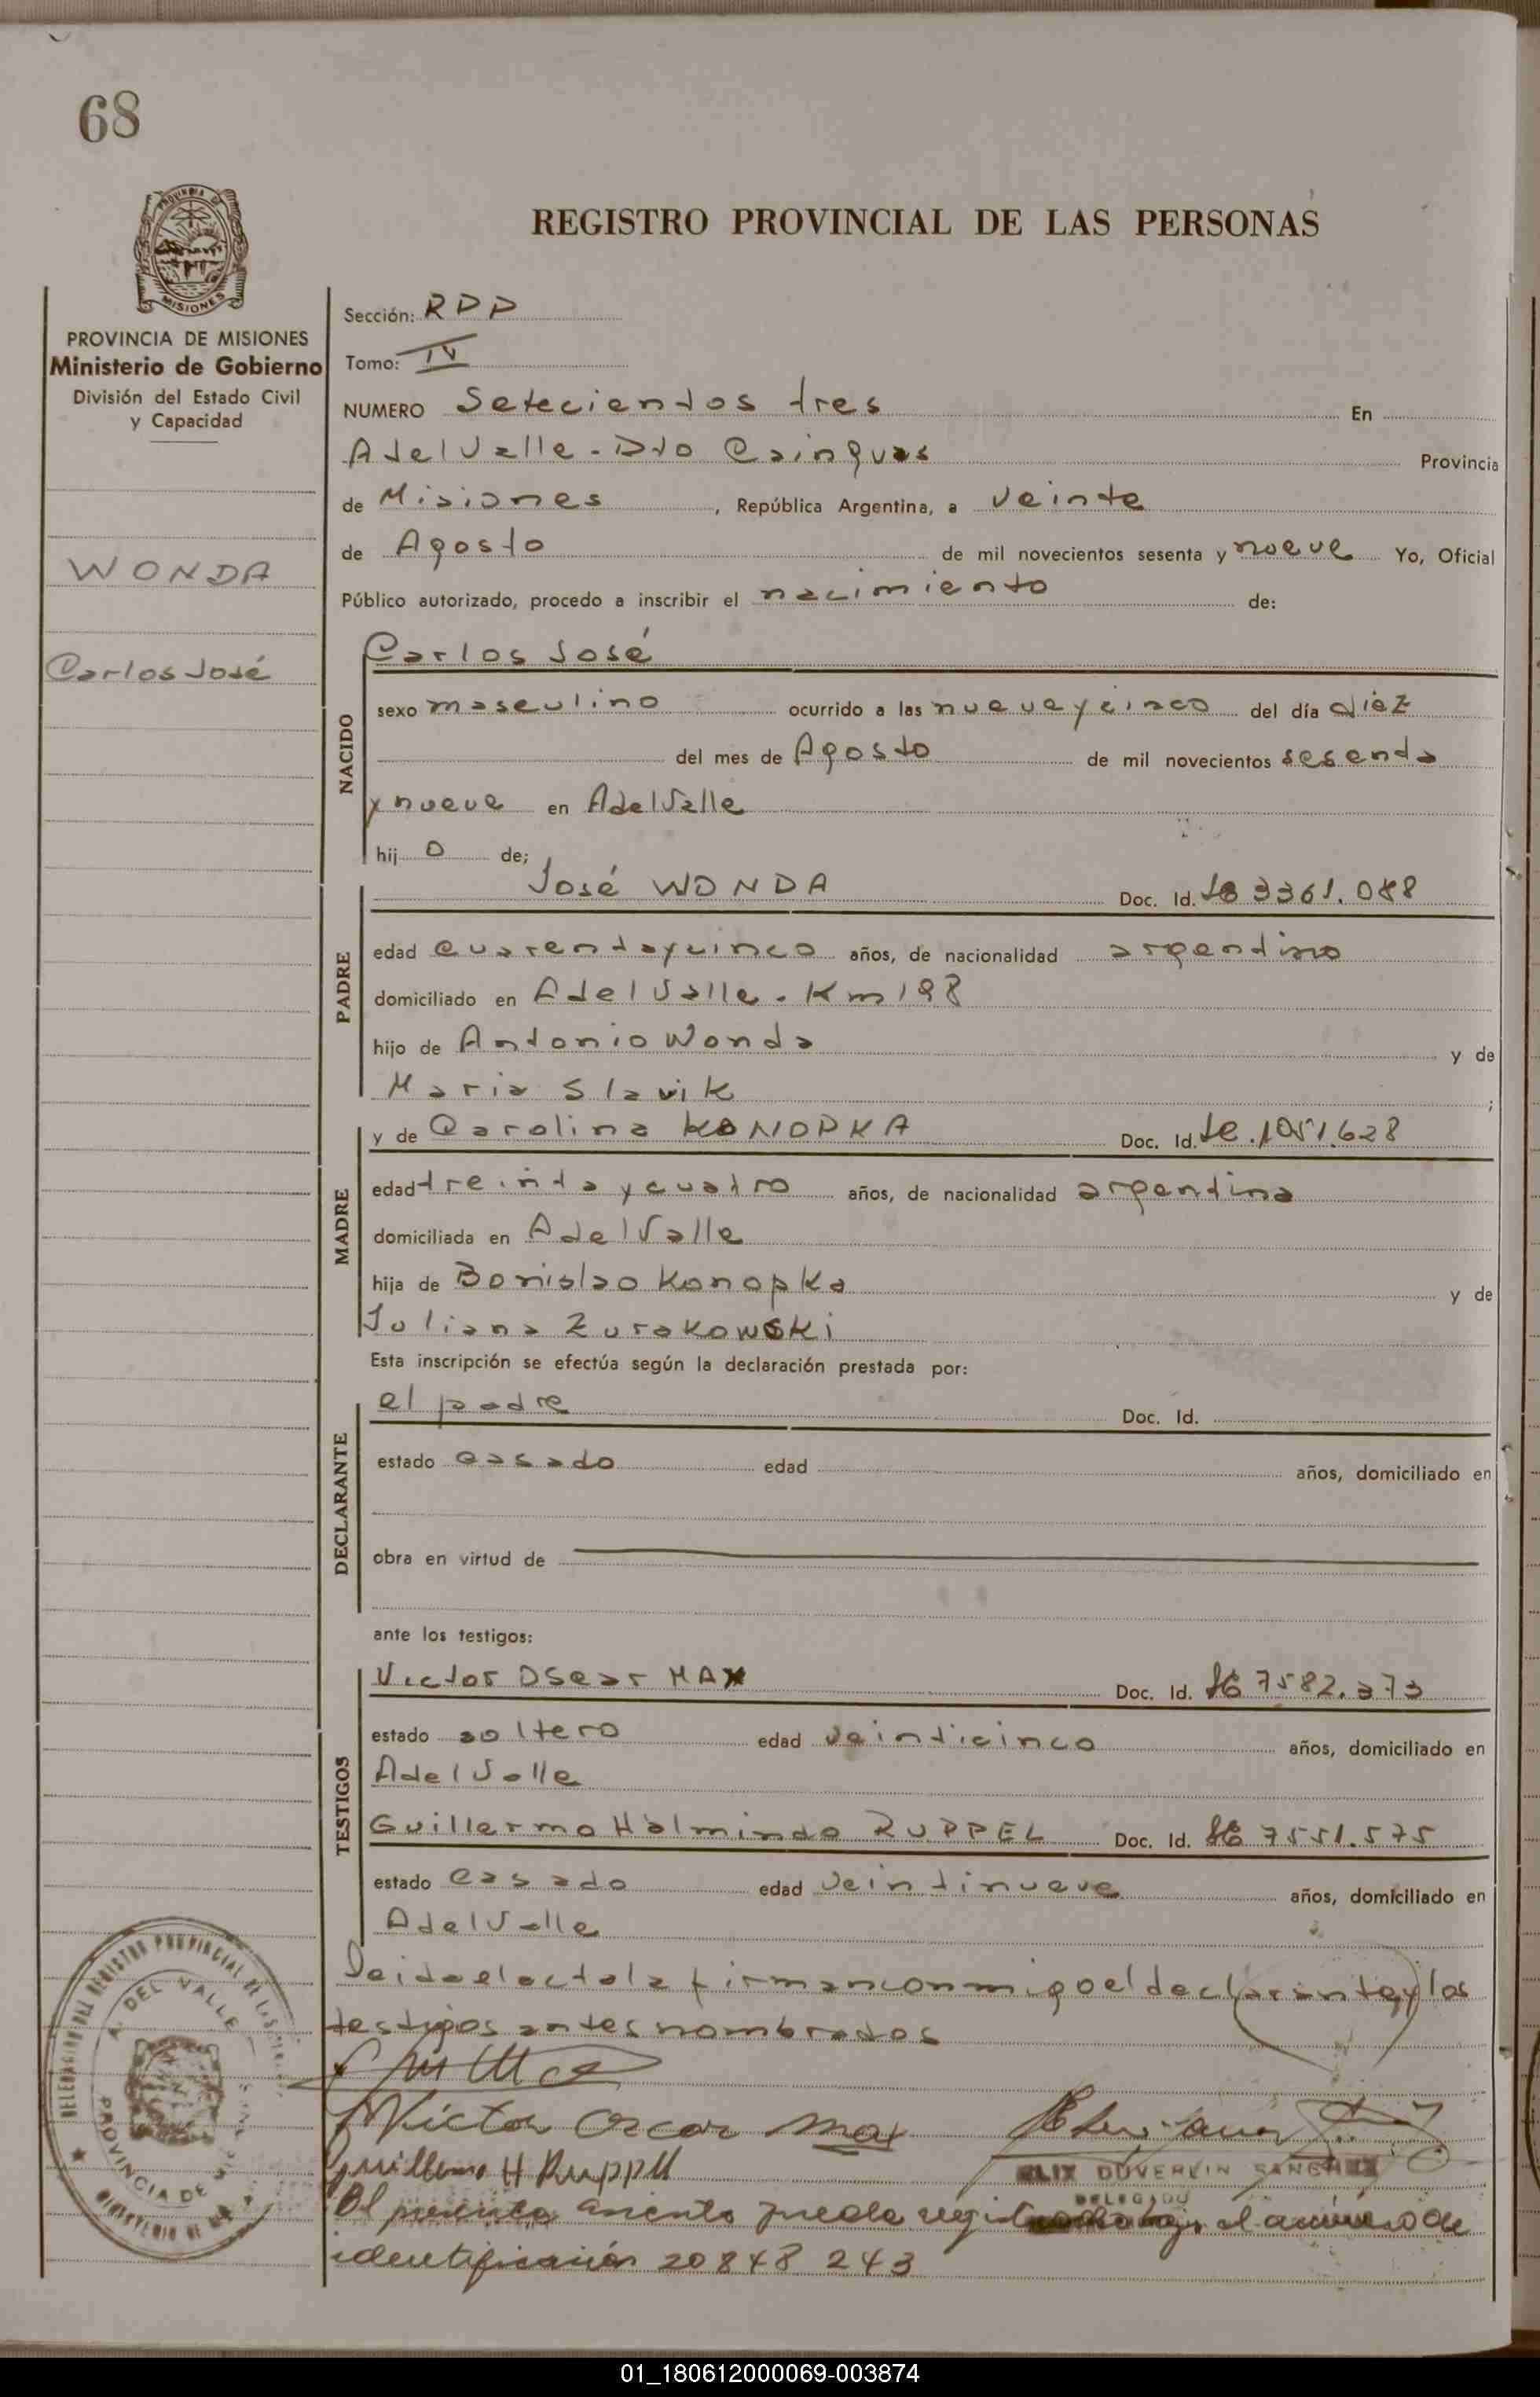 68
REGISTRO PROVINCIAL DE LAS PERSONAS
PROVINCIA DE MISIONES
Ministerio de Gobierno
División del Estado Civil
y Capacidad
WONDA
Carlos José
Sección: RDP
Tomo: IV
NUMERO Setecientos tres En
A del Valle - Dto Cainguas Provincia
de Misiones, República Argentina, a veinte
de Agosto de mil novecientos sesenta y nueve Yo, Oficial
Público autorizado, procedo a inscribir el nacimiento de:
NACIDO
Carlos José
sexo masculino ocurrido a las nueve y cinco del día diez
del mes de Agosto de mil novecientos sesenta
y nueve en A del Valle
hij o de;
PADRE
José WONDA Doc. Id. 3361.088
edad cuarenta y cinco años, de nacionalidad argentino
domiciliado en A del Valle - Km 198
hijo de Antonio Wonda y de
Maria Slavik ;
MADRE
y de Carolina KONOPKA Doc. Id. 1051.628
edad treinta y cuatro años, de nacionalidad argentina
domiciliada en A del Valle
hija de Bonislao Konopka y de
Juliana Zurakowski
Esta inscripción se efectúa según la declaración prestada por:
DECLARANTE
el padre Doc. Id.
estado casado edad años, domiciliado en
obra en virtud de
ante los testigos:
TESTIGOS
Victor Oscar MAX Doc. Id. 7582.373
estado soltero edad veinticinco años, domiciliado en
A del Valle
Guillermo Halmindo RUPPEL Doc. Id. 7551.575
estado casado edad veintinueve años, domiciliado en
A del Valle
Leida el acta la firman conmigo el declarante y los
testigos antes nombrados
Victor Oscar Max
Guillermo H Ruppel
DUVERLIN SANCHEZ
DELEGADO
El presente asiento queda registrado bajo el número de
identificación 20848 243
DELEGACION DEL REGISTRO PROVINCIAL DE LAS PERSONAS
A. DEL VALLE
PROVINCIA DE MISIONES
01_180612000069-003874